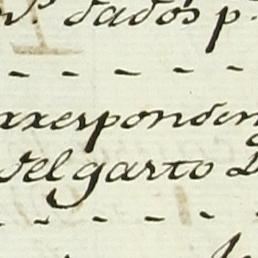 dados p.
rrespondien
del garto